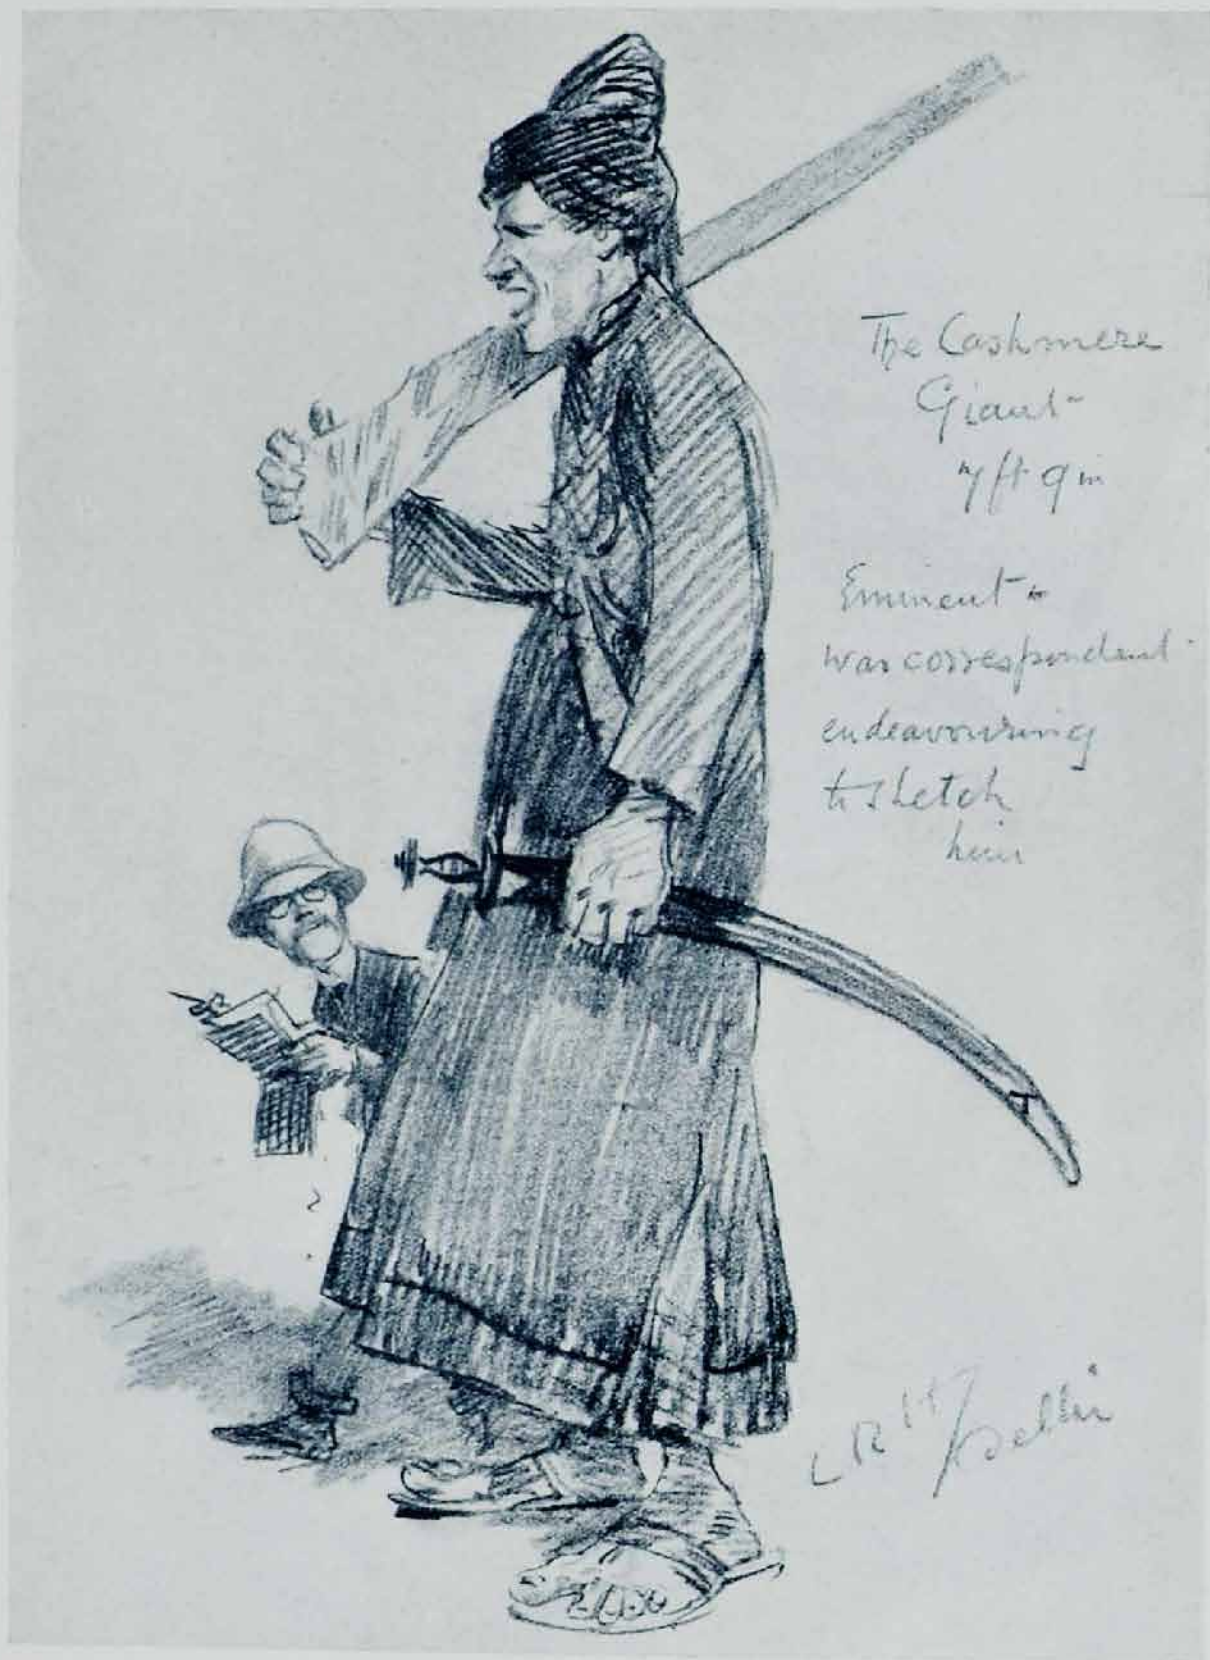 The Cashmere
Giant
7 ft 9 in
Eminent
war correspondent
endeavouring
to sketch
him
Delhi